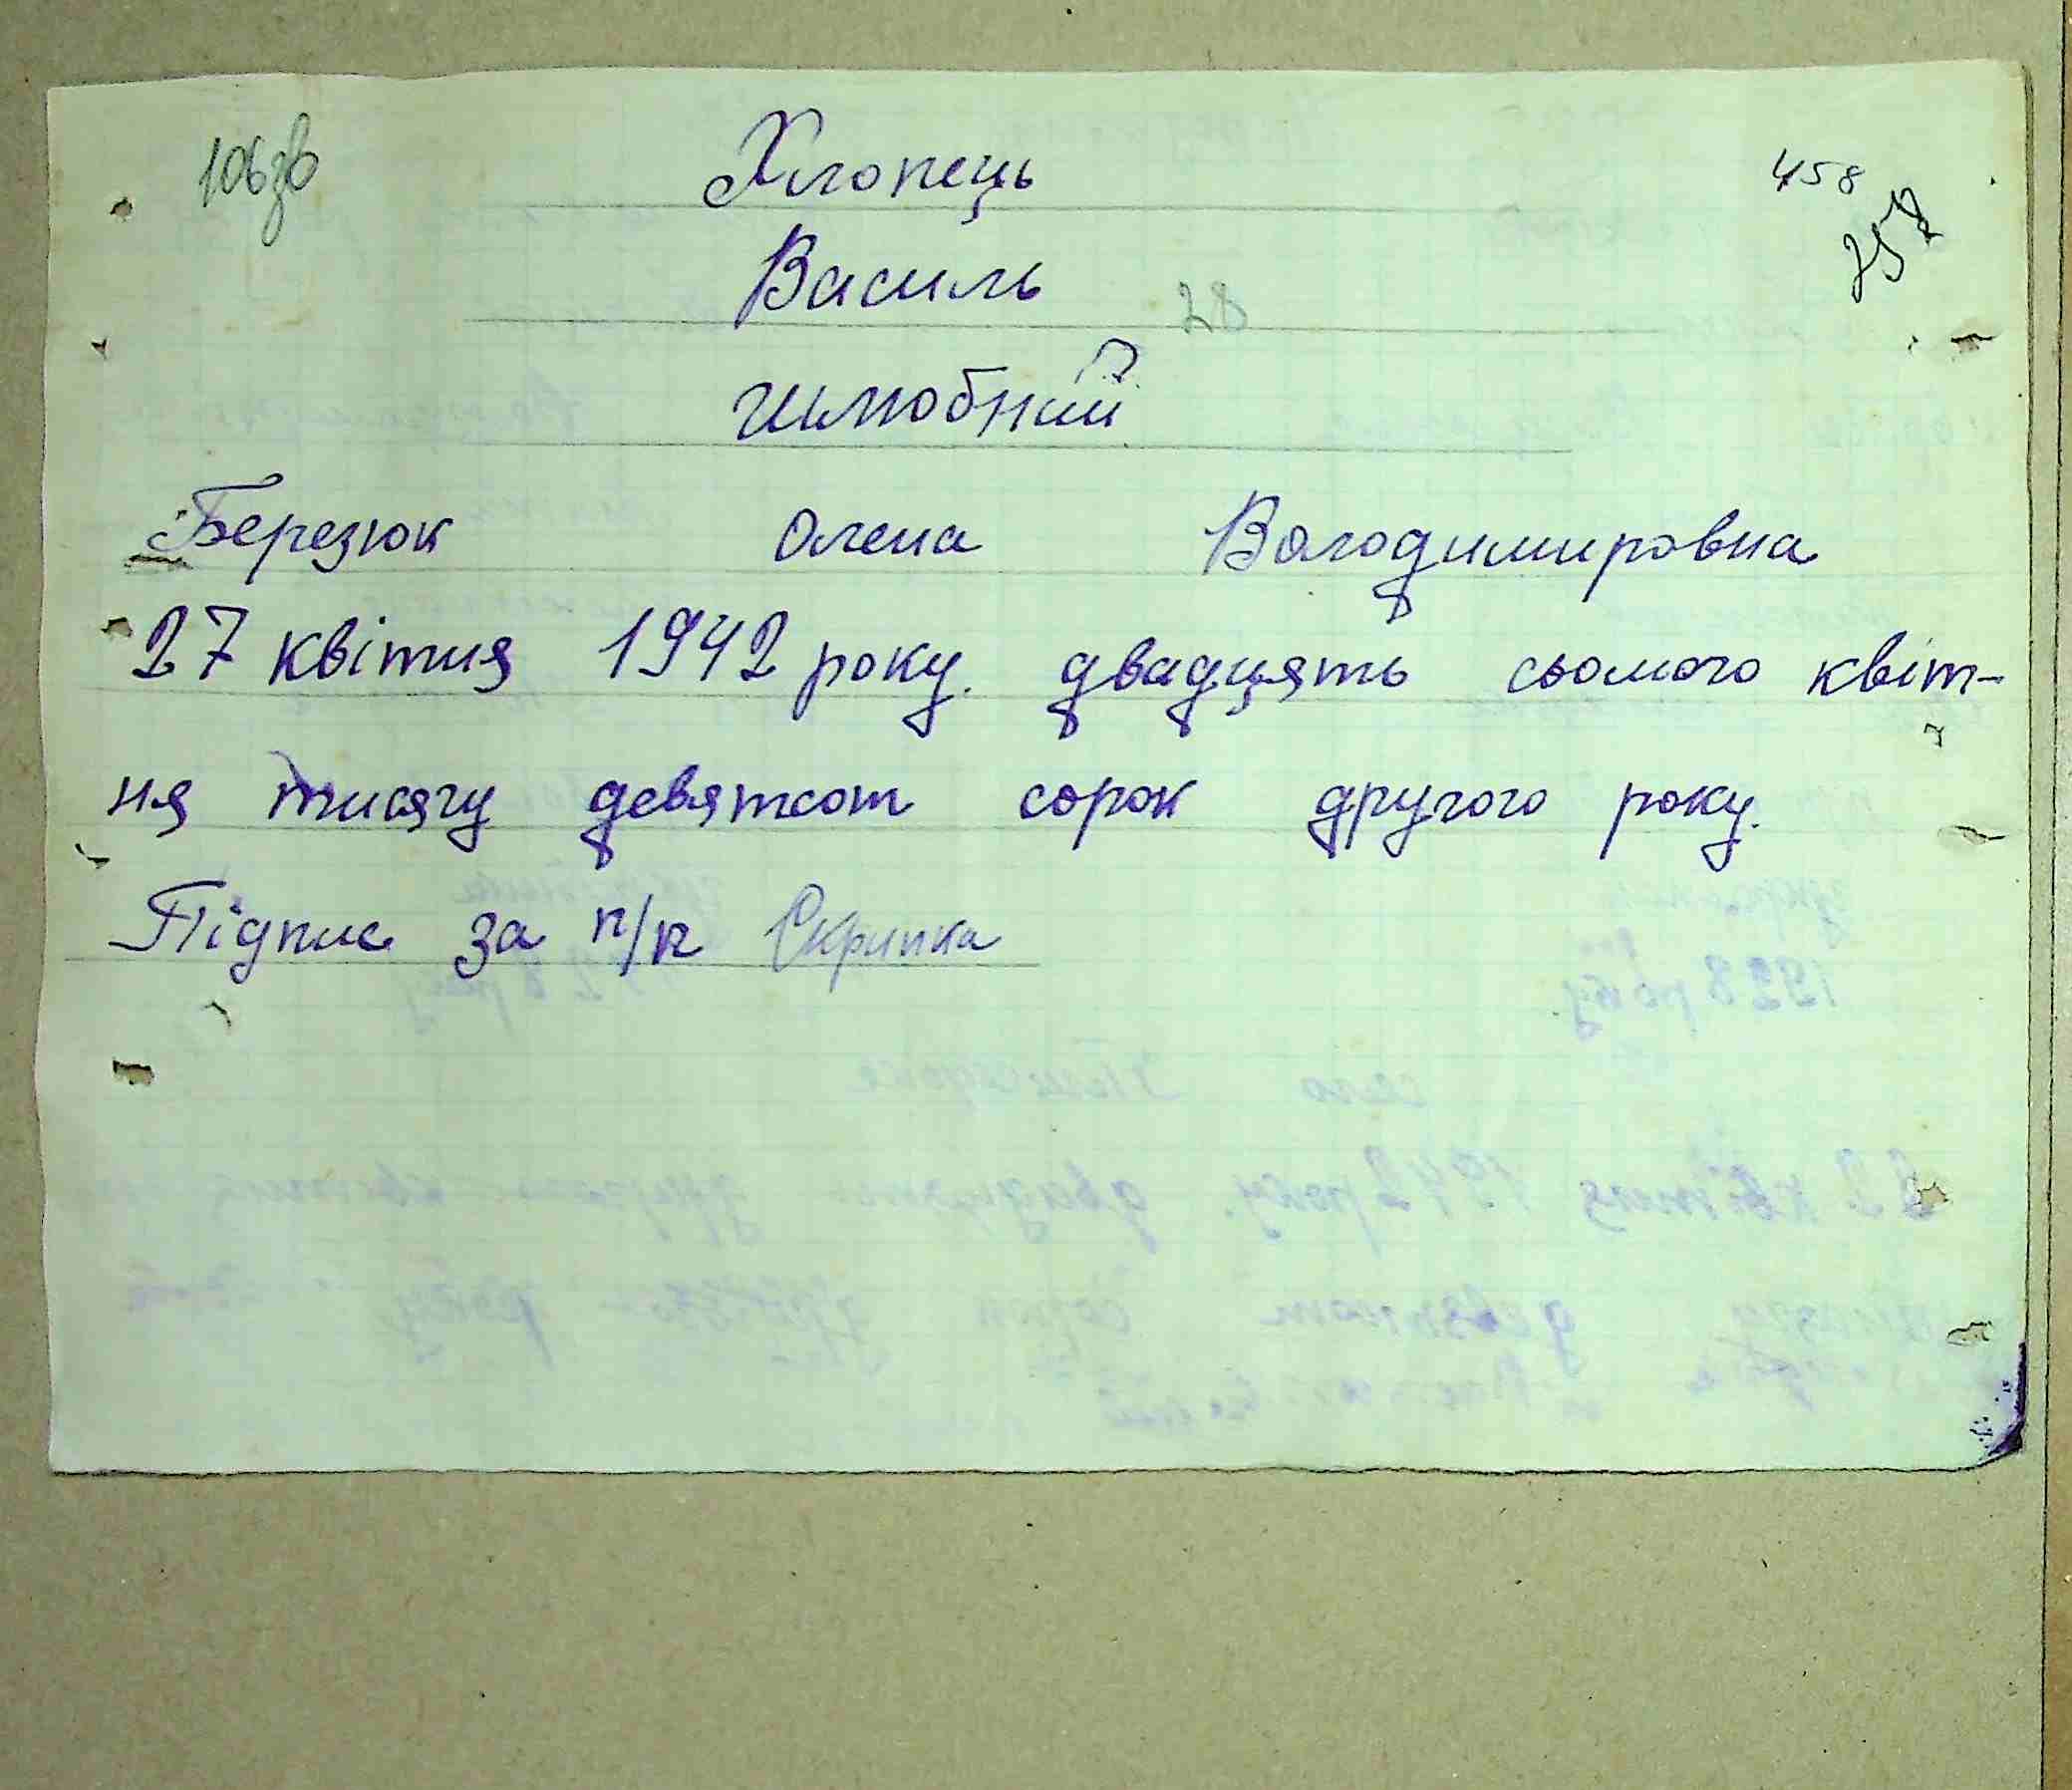 106зв
458
Хлопець
Василь 28
шлюбний
Березюк Олена Володимировна
27 квітня 1942 року. двадцять сьомого квіт-
ня тисячу девятсот сорок другого року.
Підпис за п/п Скрипка